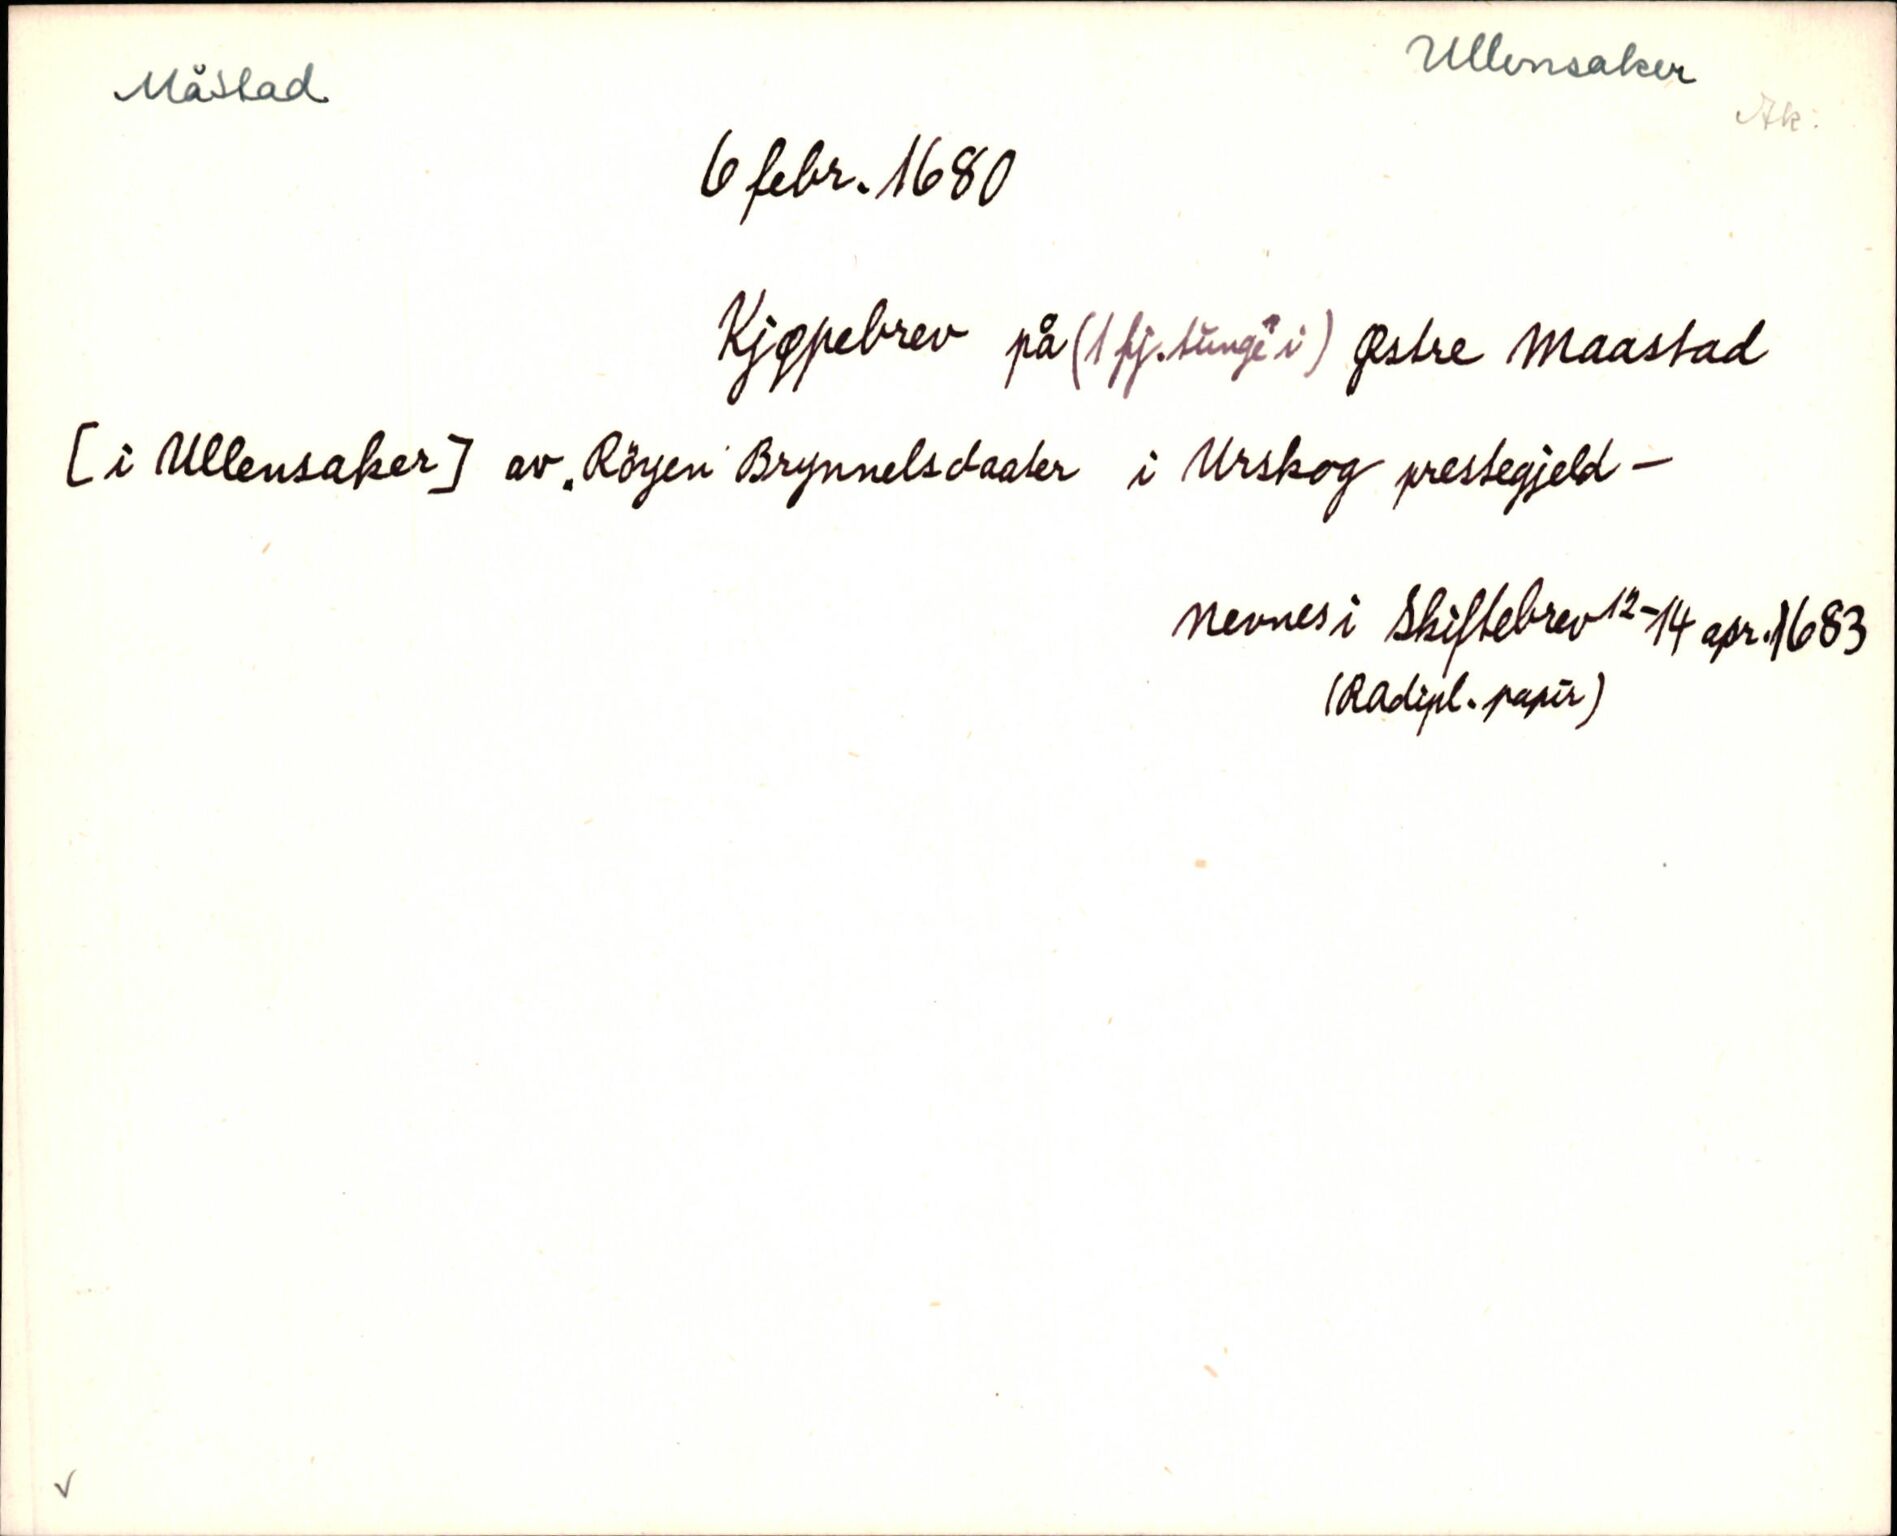 Måstad
Ullensaker
Ak.
6 febr. 1680
Kjøpebrev på (1 fj. tunge i) Østre Maastad
[i Ullensaker] av "Röyen" Brynnelsdaater i Urskog prestegjeld –
nevnes i Skiftebrev 12–14 apr. 1683
(RAdipl. papir)